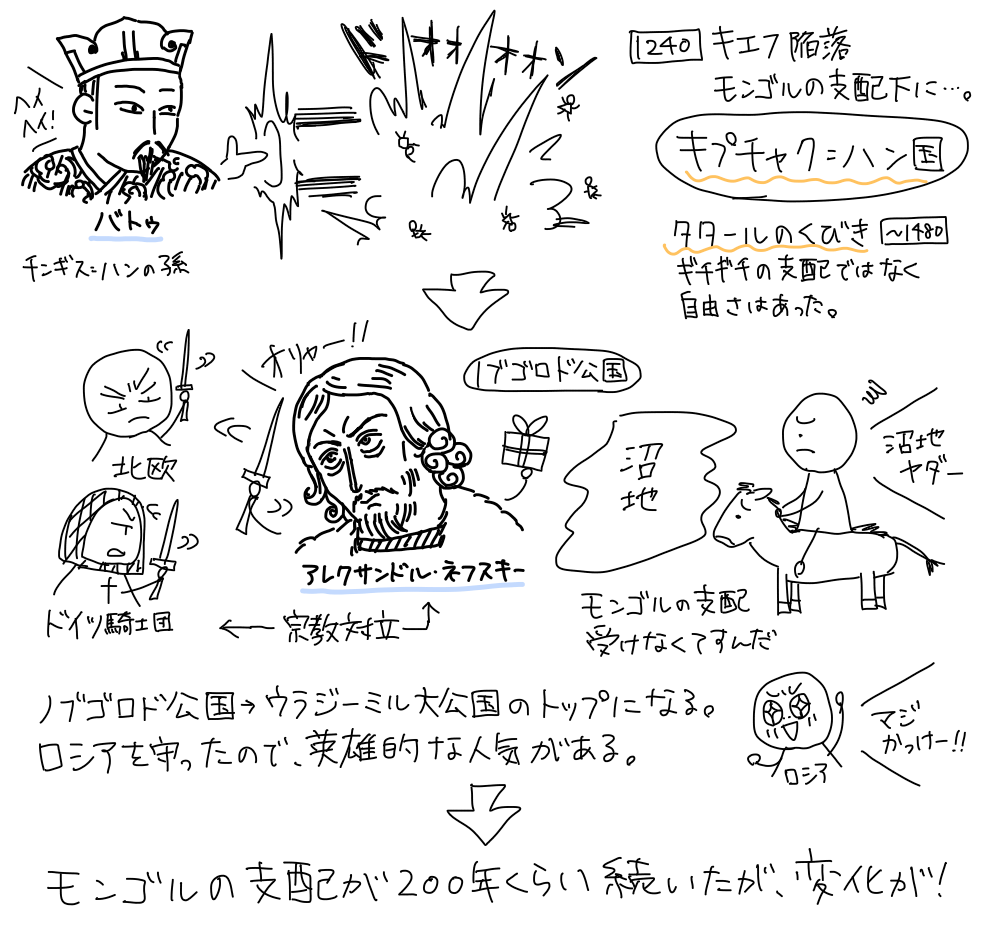 ヘイ
ヘイ!
バトゥ
チンギス=ハンの孫
ドオオオオン
1240 キエフ陥落
モンゴルの支配下に…。
キプチャク=ハン国
タタールのくびき ～1480
ギチギチの支配ではなく
自由さはあった。
オリャー!!
ノブゴロド公国
北欧
ドイツ騎士団
アレクサンドル・ネフスキー
←宗教対立
沼地
沼地
ヤダー
モンゴルの支配
受けなくてすんだ
ノブゴロド公国→ウラジーミル大公国のトップになる。
ロシアを守ったので、英雄的な人気がある。
マジ
かっけー!!
ロシア
モンゴルの支配が200年くらい続いたが、変化が!